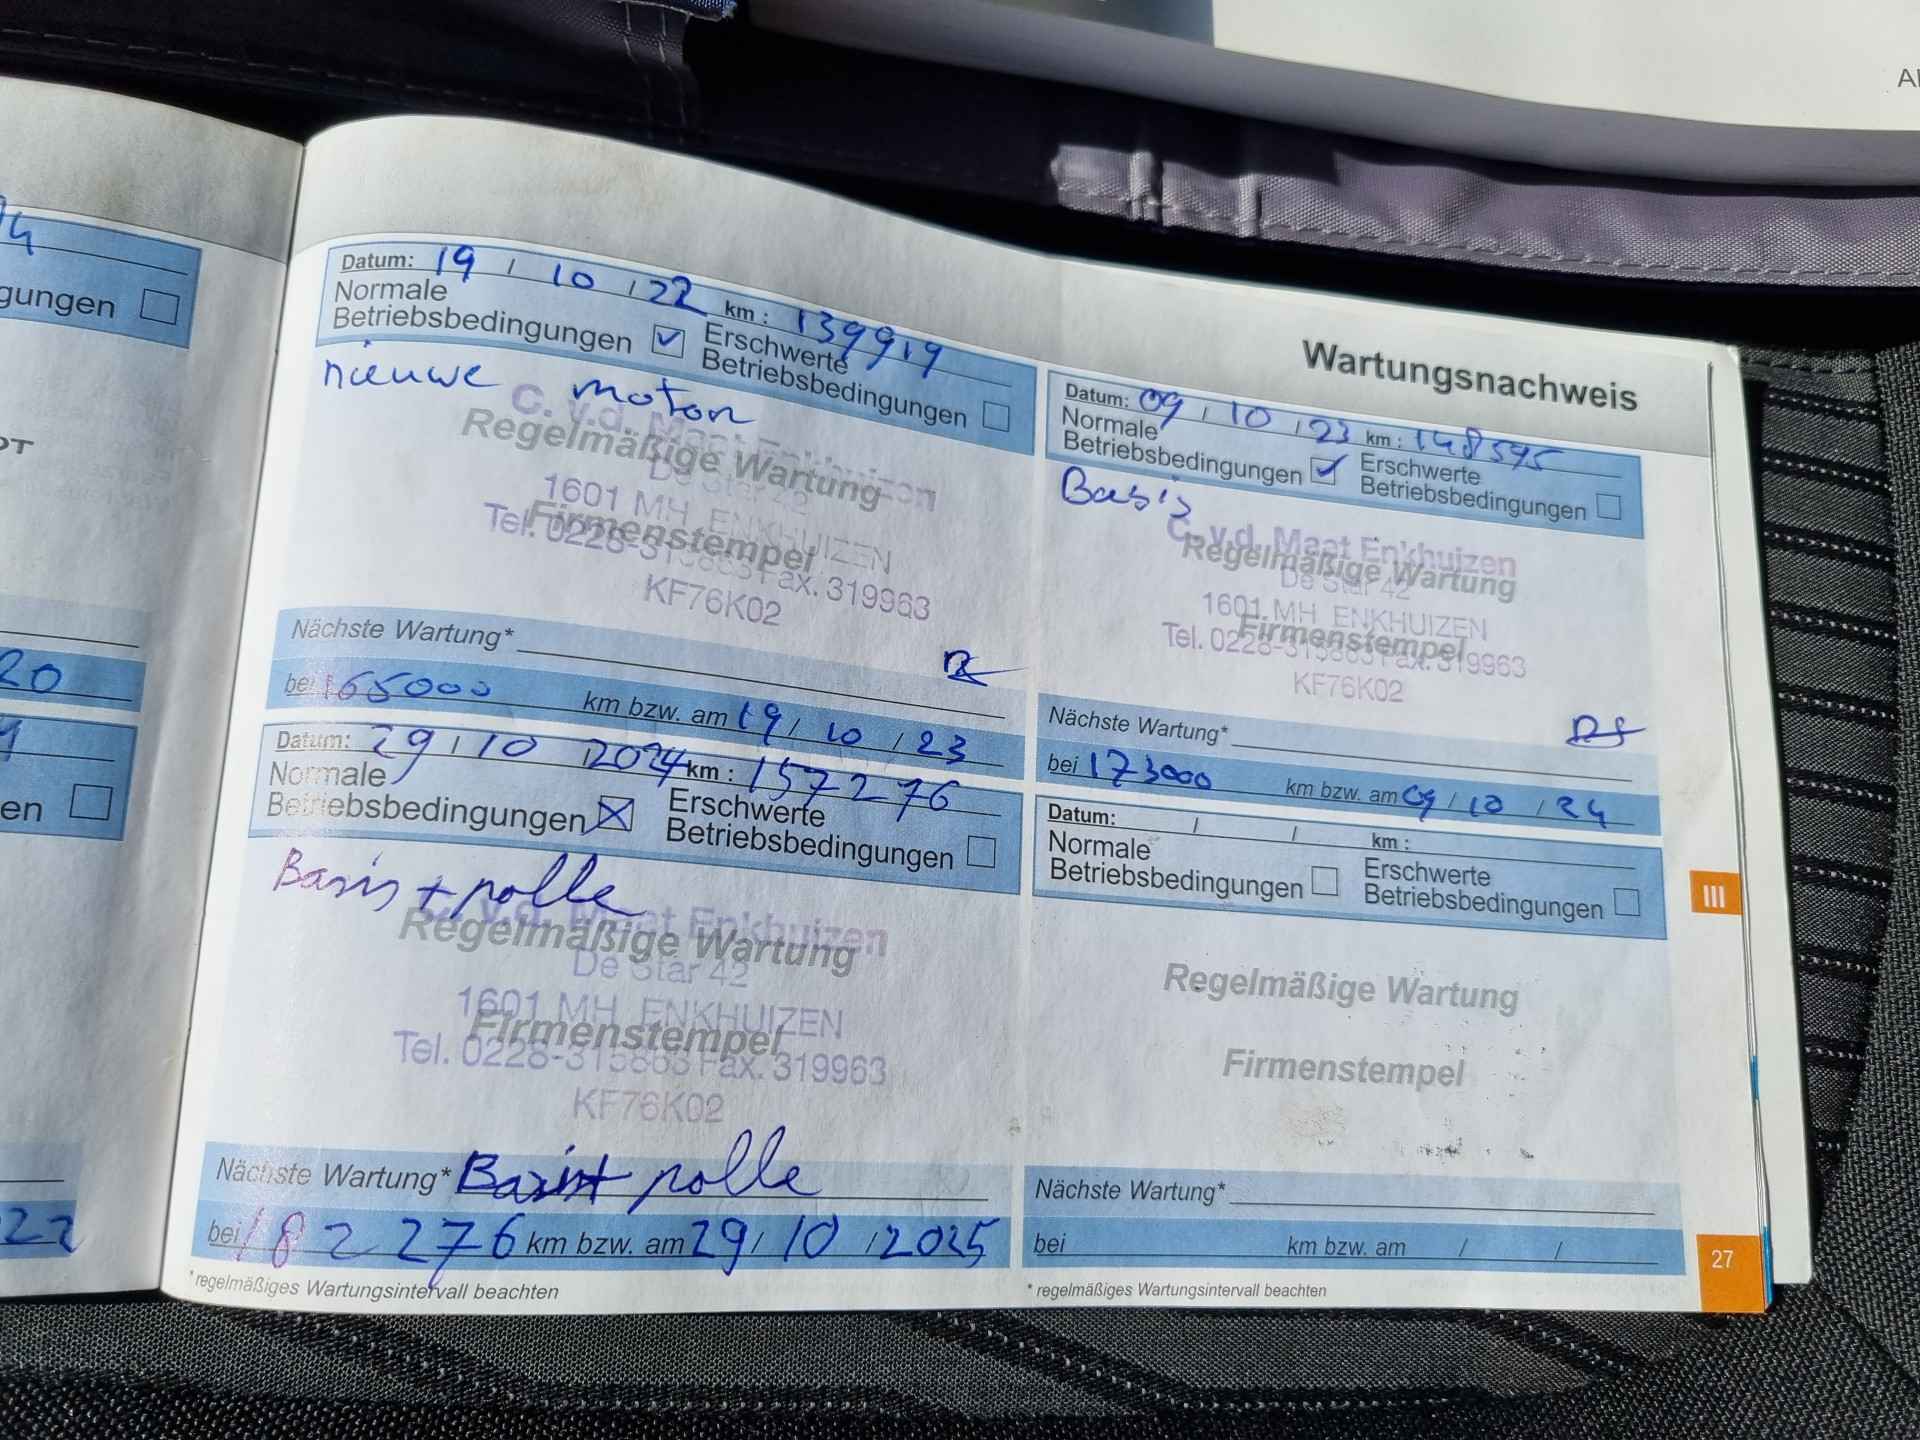 gungen
en
20
22
Wartungsnachweis
Datum: 19 / 10 / 22 km : 139919
Normale Betriebsbedingungen
Erschwerte Betriebsbedingungen
nieuwe motor
C. v.d. Maat Enkhuizen
Regelmäßige Wartung
De Star 42
1601 MH ENKHUIZEN
Firmenstempel
Tel. 0228-315863 Fax. 319963
KF76K02
Nächste Wartung*
bei 165000 km bzw. am 19 / 10 / 23
Datum: 09 / 10 / 23 km : 148595
Normale Betriebsbedingungen
Erschwerte Betriebsbedingungen
Basis
C. v.d. Maat Enkhuizen
Regelmäßige Wartung
De Star 42
1601 MH ENKHUIZEN
Firmenstempel
Tel. 0228-315863 Fax. 319963
KF76K02
Nächste Wartung*
bei 173000 km bzw. am 09 / 10 / 24
Datum: 29 / 10 / 2024 km : 157276
Normale Betriebsbedingungen
Erschwerte Betriebsbedingungen
Basis + polle
C. v.d. Maat Enkhuizen
Regelmäßige Wartung
De Star 42
1601 MH ENKHUIZEN
Firmenstempel
Tel. 0228-315863 Fax. 319963
KF76K02
Nächste Wartung* Basis+ polle
bei 182 276 km bzw. am 29 / 10 / 2025
* regelmäßiges Wartungsintervall beachten
Datum: / / km :
Normale Betriebsbedingungen
Erschwerte Betriebsbedingungen
Regelmäßige Wartung
Firmenstempel
Nächste Wartung*
bei km bzw. am / /
* regelmäßiges Wartungsintervall beachten
III
27